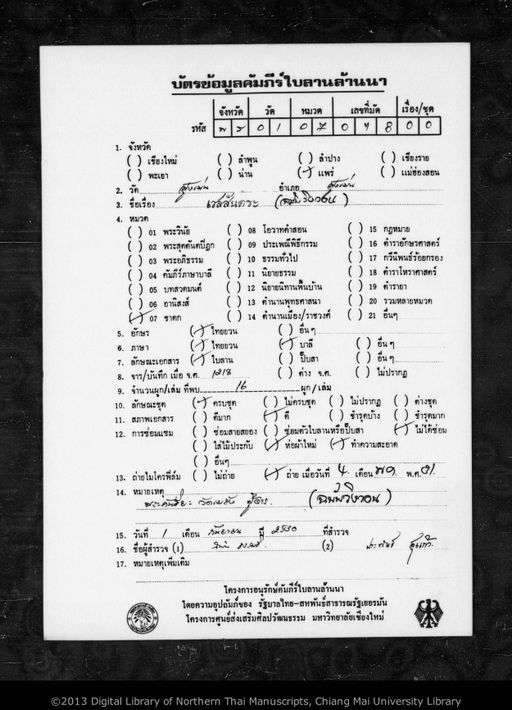 บัตรข้อมูลคัมภีร์ใบลานล้านนา
จังหวัด วัด หมวด เลขที่มัด เรื่อง/ชุด
รหัส พ ร 0 1 0 7 0 4 8 0 0
1. จังหวัด
( ) เชียงใหม่ ( ) ลำพูน ( ) ลำปาง ( ) เชียงราย
( ) พะเยา ( ) น่าน (✓) แพร่ ( ) แม่ฮ่องสอน
2. วัด สูงเม่น อำเภอ สูงเม่น
3. ชื่อเรื่อง เวสสันตระ
4. หมวด
( ) 01 พระวินัย ( ) 08 โอวาทคำสอน ( ) 15 กฎหมาย
( ) 02 พระสุตตันตปิฎก ( ) 09 ประเพณีพิธีกรรม ( ) 16 ตำราอักษรศาสตร์
( ) 03 พระอภิธรรม ( ) 10 ธรรมทั่วไป ( ) 17 กวีนิพนธ์ร้อยกรอง
( ) 04 คัมภีร์ภาษาบาลี ( ) 11 นิยายธรรม ( ) 18 ตำราโหราศาสตร์
( ) 05 บทสวดมนต์ ( ) 12 นิยายนิทานพื้นบ้าน ( ) 19 ตำรายา
( ) 06 อานิสงส์ ( ) 13 ตำนานพุทธศาสนา ( ) 20 รวมหลายหมวด
(✓) 07 ชาดก ( ) 14 ตำนานเมือง/ราชวงศ์ ( ) 21 อื่นๆ
5. อักษร (✓) ไทยยวน ( ) อื่นๆ
6. ภาษา (✓) ไทยยวน (✓) บาลี ( ) อื่นๆ
7. ลักษณะเอกสาร (✓) ใบลาน ( ) ปั๊บสา ( ) อื่นๆ
8. จาร/บันทึก เมื่อ จ.ศ. 1218 ( ) ต่าง จ.ศ. ( ) ไม่ปรากฏ
9. จำนวนผูก/เล่ม ที่พบ 16 ผูก/เล่ม
10. ลักษณะชุด (✓) ครบชุด ( ) ไม่ครบชุด ( ) ไม่ปรากฏ ( ) ต่างชุด
11. สภาพเอกสาร ( ) ดีมาก (✓) ดี ( ) ชำรุดบ้าง ( ) ชำรุดมาก
12. การซ่อมแซม ( ) ซ่อมสายสยอง ( ) ซ่อมตัวใบลานหรือปั๊บสา (✓) ไม่ได้ซ่อม
( ) ใส่ไม้ประกับ (✓) ห่อผ้าใหม่ (✓) ทำความสะอาด
( ) อื่นๆ
13. ถ่ายไมโครฟิล์ม ( ) ไม่ถ่าย (✓) ถ่าย เมื่อวันที่ 4 เดือน พ.ศ.
14. หมายเหตุ
15. วันที่ 1 เดือน กันยายน ปี 2530 ที่สำรวจ
16. ชื่อผู้สำรวจ (1) (2)
17. หมายเหตุเพิ่มเติม
โครงการอนุรักษ์คัมภีร์ใบลานล้านนา
โดยความอุปถัมภ์ของ รัฐบาลไทย-สหพันธ์สาธารณรัฐเยอรมัน
โครงการศูนย์ส่งเสริมศิลปวัฒนธรรม มหาวิทยาลัยเชียงใหม่
©2013 Digital Library of Northern Thai Manuscripts, Chiang Mai University Library